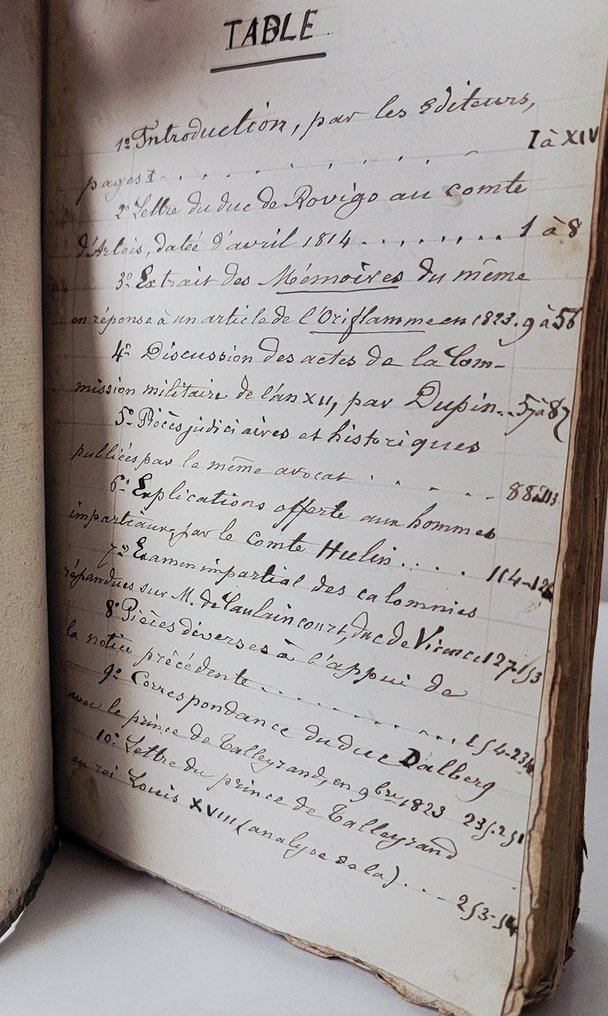 TABLE
1º Introduction, par les Editeurs,
pages I - . . . . . . . I à XIV
2º Lettre du duc de Rovigo au comte
d'Artois, datée d'avril 1814 . . . . . . . . 1 à 8
3º Extrait des Mémoires du même
en réponse à un article de l'Oriflamme en 1823. 9 à 56
4º Discussion des actes de la Com-
mission militaire de l'an XII, par Dupin.. 57 à 87
5º Pièces judiciaires et historiques
publiées par le même avocat . . . . . 88 à 113
6º Explications offerte aux hommes
impartiaux, par le Comte Hulin . . . . 114-126
7º Examen impartial des calomnies
répandues sur M. de Caulaincourt, duc de Vicence 127-153
8º Pièces diverses à l'appui de
la notice précédente . . . . . . . . . . . 154-234
9º Correspondance du duc Dalberg
avec le prince de Talleyrand, en 9bre 1823 235-251
10º Lettre du prince de Talleyrand
au roi Louis XVIII (analyse de la) . . . 253-54